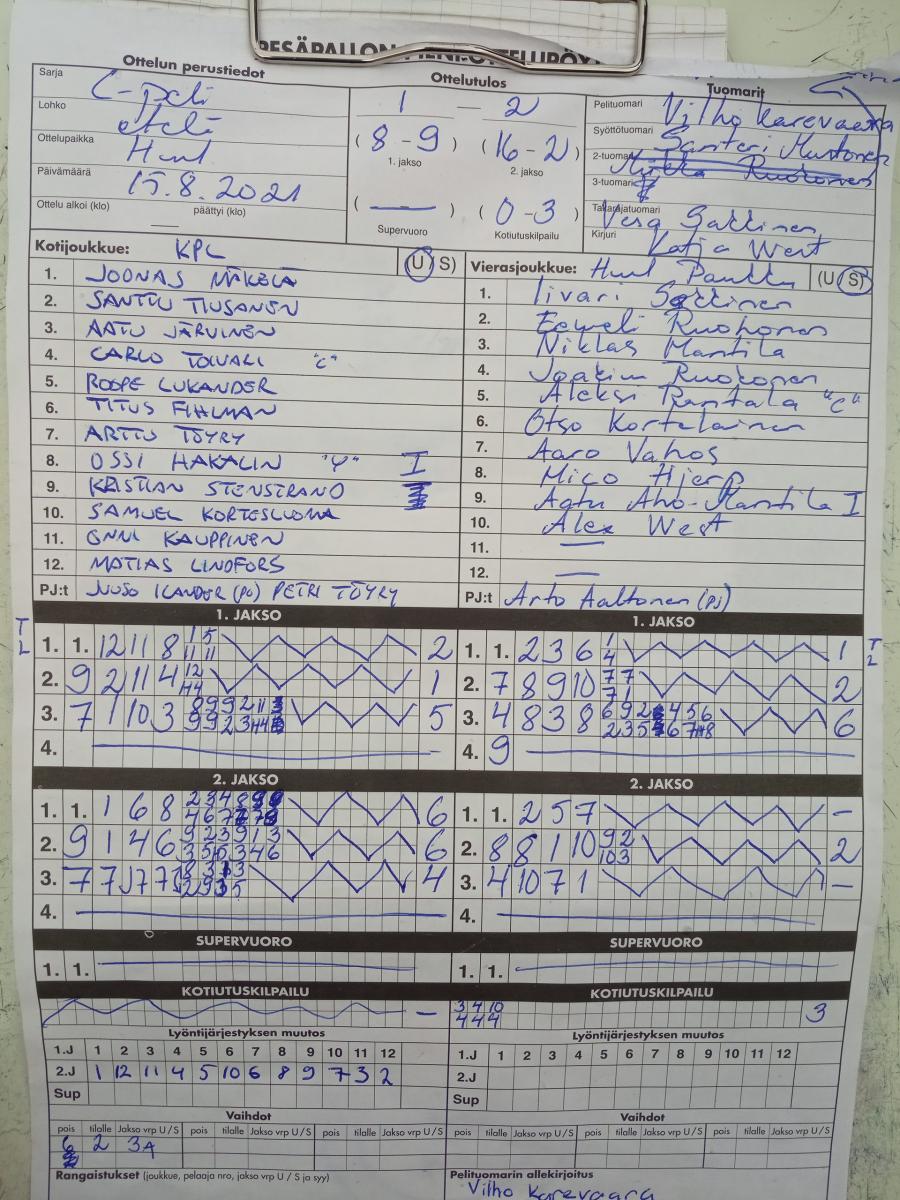 PESÄPALLON
Ottelun perustiedot
Sarja C-peli
Lohko etelä
Ottelupaikka
Päivämäärä 15.8.2021
Ottelu alkoi (klo) päättyi (klo)
Ottelutulos
1 — 2
( 8 - 9 ) ( 16 - 2 )
1. jakso 2. jakso
( — ) ( 0 - 3 )
Supervuoro Kotiutuskilpailu
Tuomarit
Pelituomari Vilho Karevaara
Syöttötuomari Santeri Mustonen
2-tuomari
3-tuomari
Takarajatuomari Vesa Sallinen
Kirjuri Katja West
Kotijoukkue: KPL (U) S)
1. JOONAS MÄKELÄ
2. SANTTU TIUSANEN
3. AATU JÄRVINEN
4. CARLO TOIVARI "C"
5. ROOPE LUKANDER
6. TITUS FIHLMAN
7. ARTTU TÖYRY
8. OSSI HAKALIN I
9. KRISTIAN STENSTRAND
10. SAMUEL KORTESLUOMA
11. ONNI KAUPPINEN
12. MATIAS LINDFORS
PJ:t JUUSO ILANDER (PJ) PETRI TÖYRY
Vierasjoukkue: (U / S)
1. Iivari Sallinen
2. Eemeli Ruohonen
3. Niklas Mantila
4. Joakim Ruokonen
5. Aleksi Rantala "C"
6. Otso Kortelainen
7. Aaro Vahos
8. Mico Hjerp
9. Aatu Aho-Mantila I
10. Alex West
11. —
12. —
PJ:t Arto Aaltonen (PJ)
1. JAKSO
1. 1. 12 11 8 2
2. 9 2 11 4 1
3. 7 1 10 3 5
4. —
1. JAKSO
1. 1. 2 3 6 1
2. 7 8 9 10 2
3. 4 8 3 8 6
4. 9
2. JAKSO
1. 1. 1 6 8 6
2. 9 1 4 6 6
3. 4
4.
2. JAKSO
1. 1. 2 5 7 —
2. 8 8 1 10 2
3. 4 10 7 1 —
4.
SUPERVUORO
1. 1.
SUPERVUORO
1. 1.
KOTIUTUSKILPAILU
—
KOTIUTUSKILPAILU
3 4 10 3
4 4 4
Lyöntijärjestyksen muutos
1.J 1 2 3 4 5 6 7 8 9 10 11 12
2.J 1 12 11 4 5 10 6 8 9 7 3 2
Sup
Lyöntijärjestyksen muutos
1.J 1 2 3 4 5 6 7 8 9 10 11 12
2.J
Sup
Vaihdot
pois tilalle Jakso vrp U / S pois tilalle Jakso vrp U / S pois tilalle Jakso vrp U / S
6 2 3A
Vaihdot
pois tilalle Jakso vrp U / S pois tilalle Jakso vrp U / S pois tilalle Jakso vrp U / S
Rangaistukset (joukkue, pelaaja nro, jakso vrp U / S ja syy)
Pelituomarin allekirjoitus
Vilho Karevaara